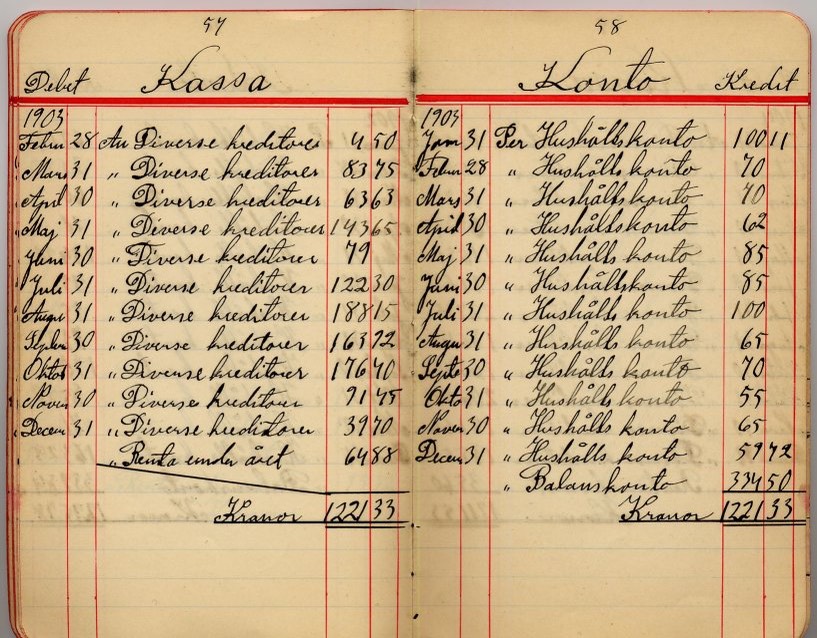 57
Debet Kassa
1903
Febru 28 An Diverse kreditorer 4 50
Mars 31 " Diverse kreditorer 83 75
April 30 " Diverse kreditorer 63 63
Maj 31 " Diverse kreditorer 143 65
Juni 30 " Diverse kreditorer 79
Juli 31 " Diverse kreditorer 122 30
Augu 31 " Diverse kreditorer 188 15
Septem 30 " Diverse kreditorer 163 92
Oktob 31 " Diverse kreditorer 176 40
Novem 30 " Diverse kreditorer 91 45
Decem 31 " Diverse kreditorer 39 70
" Renta under året 64 88
Kronor 1221 33
58
Konto Kredit
1903
Jan 31 Per Hushållskonto 100 11
Febru 28 " Hushållskonto 70
Mars 31 " Hushållskonto 70
April 30 " Hushållskonto 62
Maj 31 " Hushållskonto 85
Juni 30 " Hushållskonto 85
Juli 31 " Hushålls konto 100
Augu 31 " Hushålls konto 65
Septe 30 " Hushålls konto 70
Okto 31 " Hushålls konto 55
Novem 30 " Hushålls konto 65
Decem 31 " Hushålls konto 59 72
" Balanskonto 334 50
Kronor 1221 33